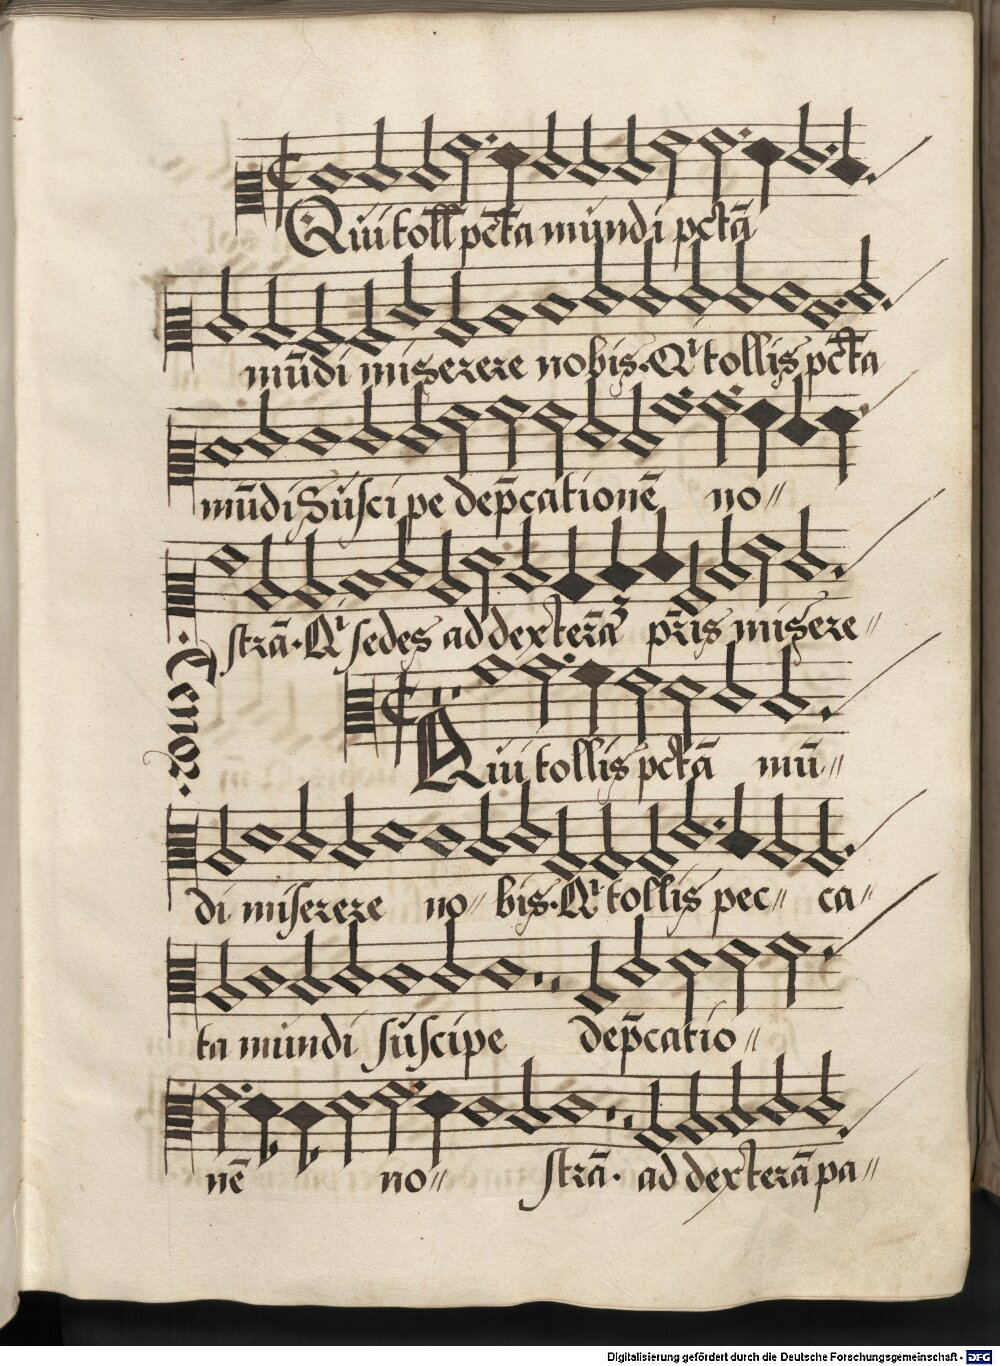 Qui toll̄ pc̄ta mundi pctā
mūdi miserere nobis. Qi tollis pc̄ta
mūdi Suscipe dep̄cationē no//
strā. Qi sedes ad dexterā pr̄is misere//
Tenor.
Qui tollis pctā mū//
di miserere no// bis. Qi tollis pec// ca//
ta mundi suscipe dep̄catio//
nē no// strā. ad dexterā pa//
Digitalisierung gefördert durch die Deutsche Forschungsgemeinschaft - DFG